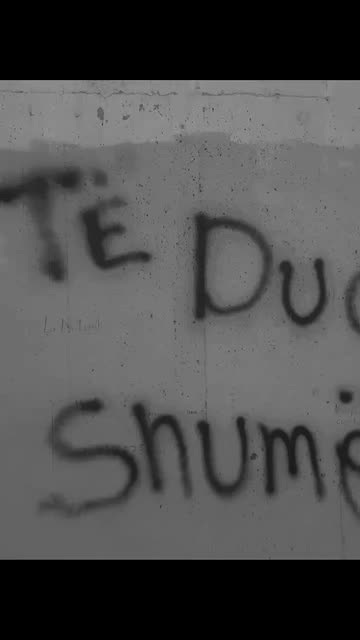 TË Dua
Shumë